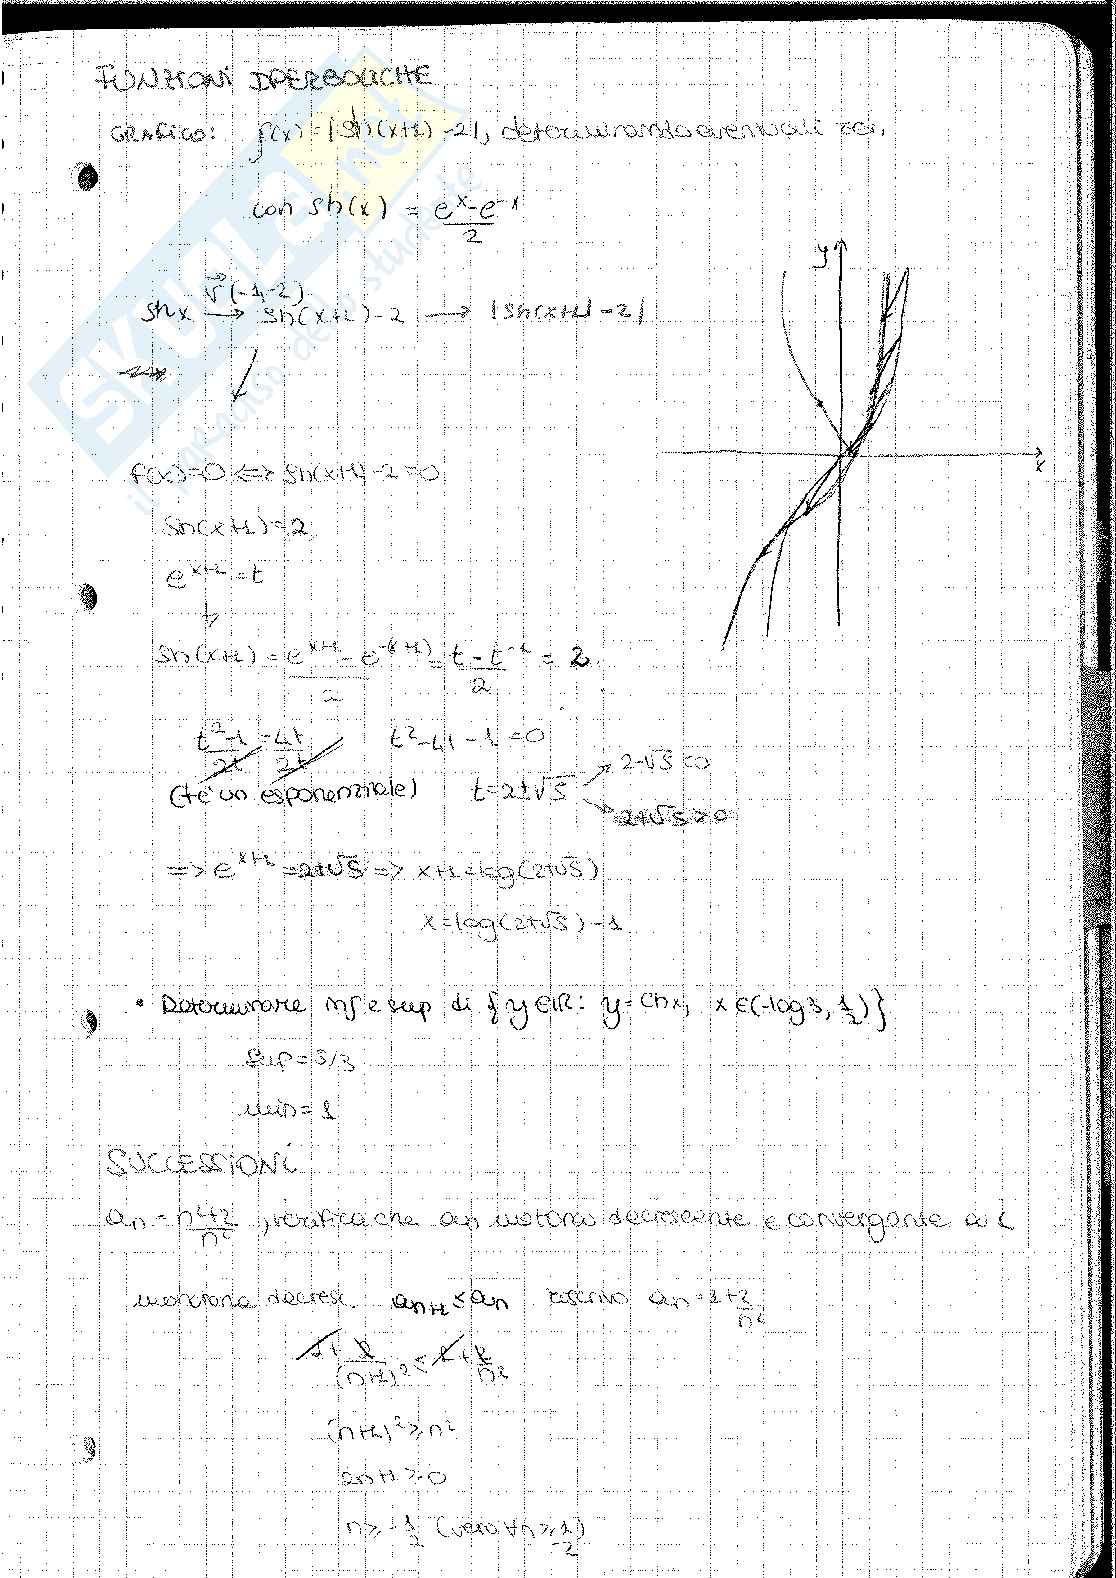 FUNZIONI IPERBOLICHE
GRAFICO: f(x) = |Sh(x+1) - 2|, determinando eventuali zeri.
con Sh(x) = (e^x - e^-x)/2
Shx →v(-1,-2) Sh(x+1) - 2 → |Sh(x+1) - 2|
y
x
f(x)=0 <=> Sh(x+1) - 2 = 0
Sh(x+1) = 2
e^(x+1) = t
Sh(x+1) = (e^(x+1) - e^-(x+1))/2 = (t - t^-1)/2 = 2
(t²-1)/2t = 4t/2t t² - 4t - 1 = 0
(t è un esponenziale) t = 2±√5 2-√5 < 0
2+√5 > 0
=> e^(x+1) = 2+√5 => x+1 = log(2+√5)
x = log(2+√5) - 1
• Determinare inf e sup di {y∈IR: y = Chx, x∈(-log3, 1/2)}
Sup = 5/3
min = 1
SUCCESSIONI
an = (n²+2)/n², verifica che an monotona decrescente e convergente a
monotona decresc. an+1 ≤ an riscrivo an = 1+2/n²
1 + 2/(n+1)² ≤ 1 + 2/n²
(n+1)² ≥ n²
2n+1 ≥ 0
n ≥ -1/2 (vero ∀n ≥ 1/2)
SKUOLA.net
il paradiso dello studente